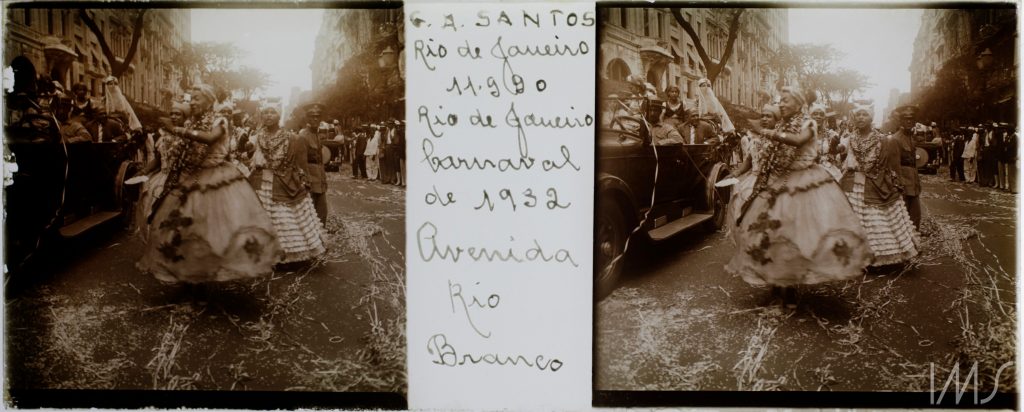 G. A. SANTOS
Rio de Janeiro
11.990
Rio de Janeiro
Carnaval
de 1932
Avenida
Rio
Branco
IMS